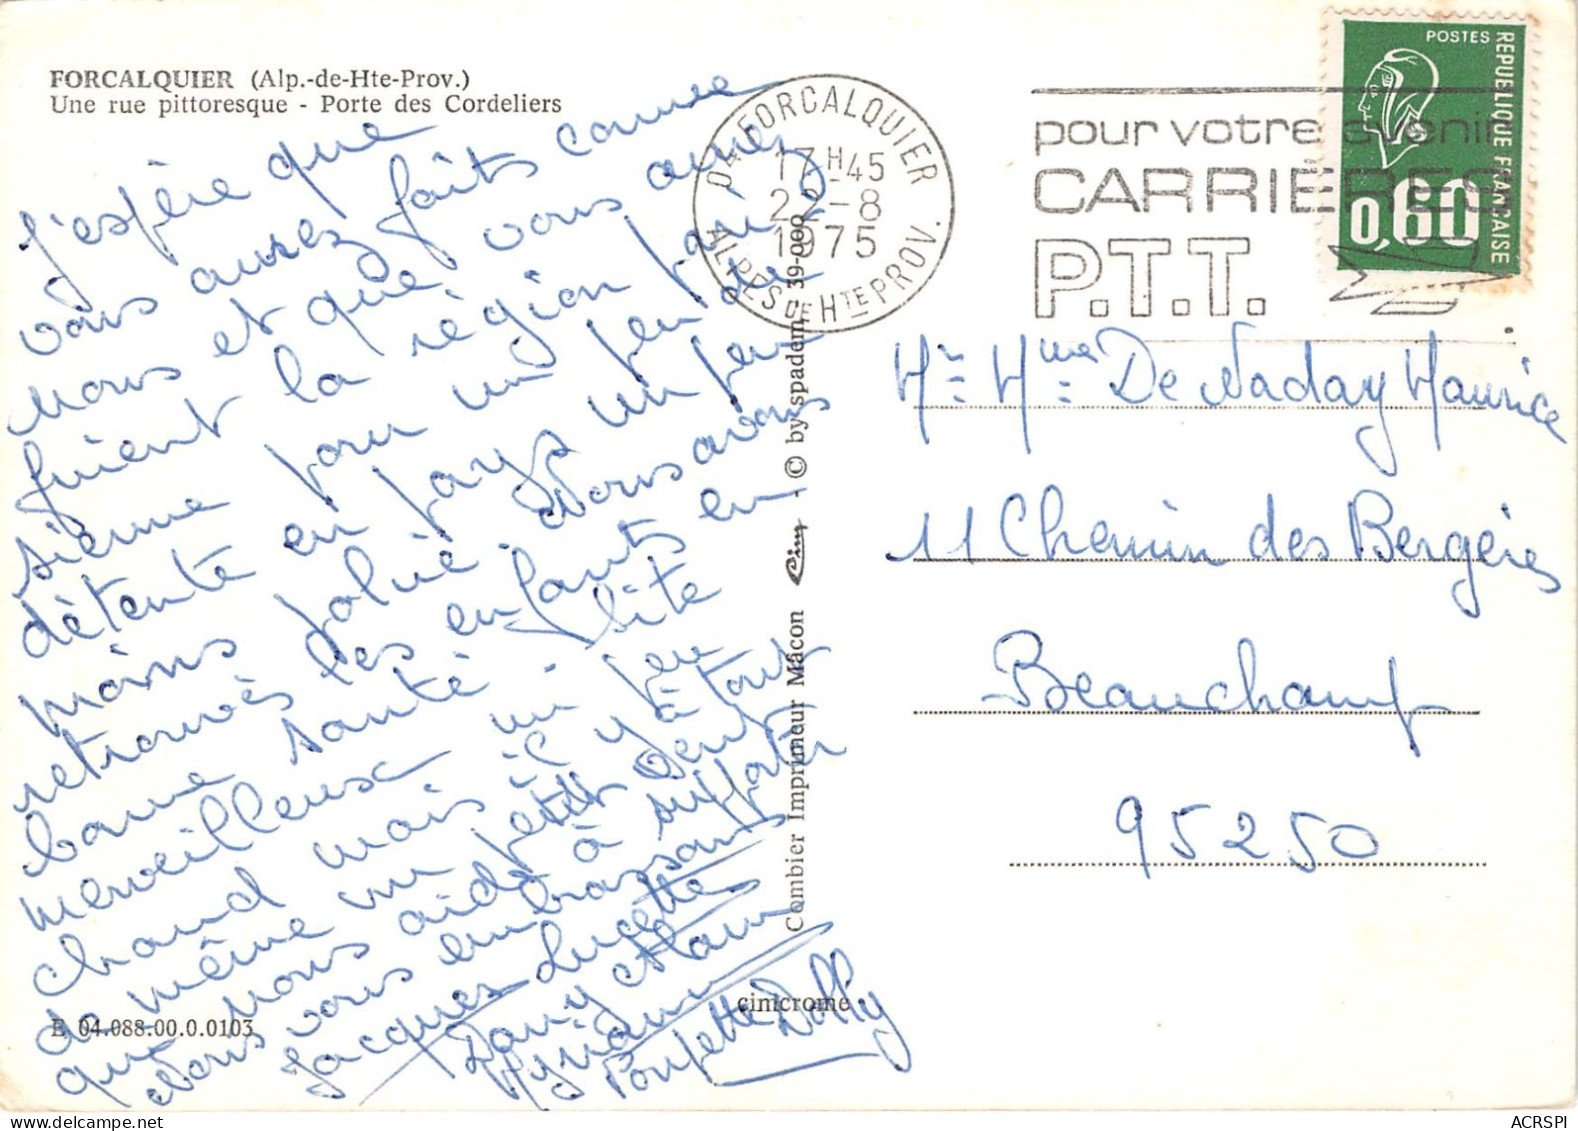 FORCALQUIER (Alp.-de-Hte-Prov.)
Une rue pittoresque - Porte des Cordeliers
J'espère que
vous aurez faits comme
nous et que vous aurez
fuient la région parisienne
pour un peu de
détente en pays un peu
moins polué. Nous avons
retrouvés les enfants en
bonne santé.
merveilleux un peu
chaud mais il y à tout
de même un petit vent
que nous aide à supporter
Nous vous embrassant
Jacques Lucette
Dany Alain
Myriam
Poupette Dolly
E 04.088.00.0.0103
cimcrome
Combier Imprimeur Mâcon Cim - © by spadem 39-000
04 FORCALQUIER
17H45
22-8
1975
ALPES DE HTE PROV.
pour votre avenir
CARRIERES
P.T.T.
POSTES
REPUBLIQUE FRANCAISE
0,60
Mr = Mme = De Naday Maurice
11 Chemin des Bergères
Beauchamp
95250
ACRSPI